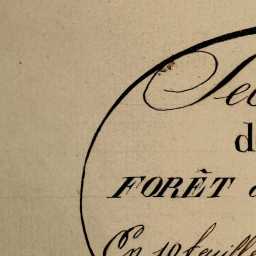 d
FORÊT
En 10 feuille